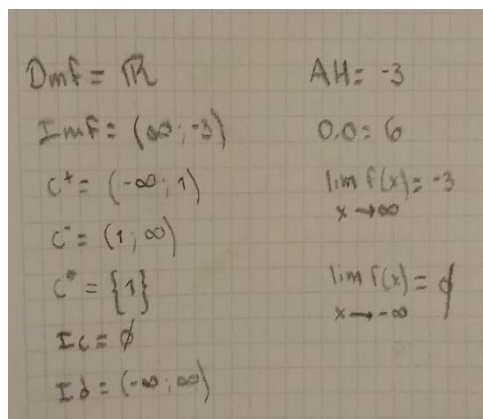 Dmf = ℝ
Imf = (∞; -3)
C⁺ = (-∞; 1)
C⁻ = (1; ∞)
C⁰ = {1}
Ic = ∅
Id = (-∞; ∞)
AH = -3
O.O = 6
lim f(x) = -3
x → ∞
lim f(x) = ∅
x → -∞